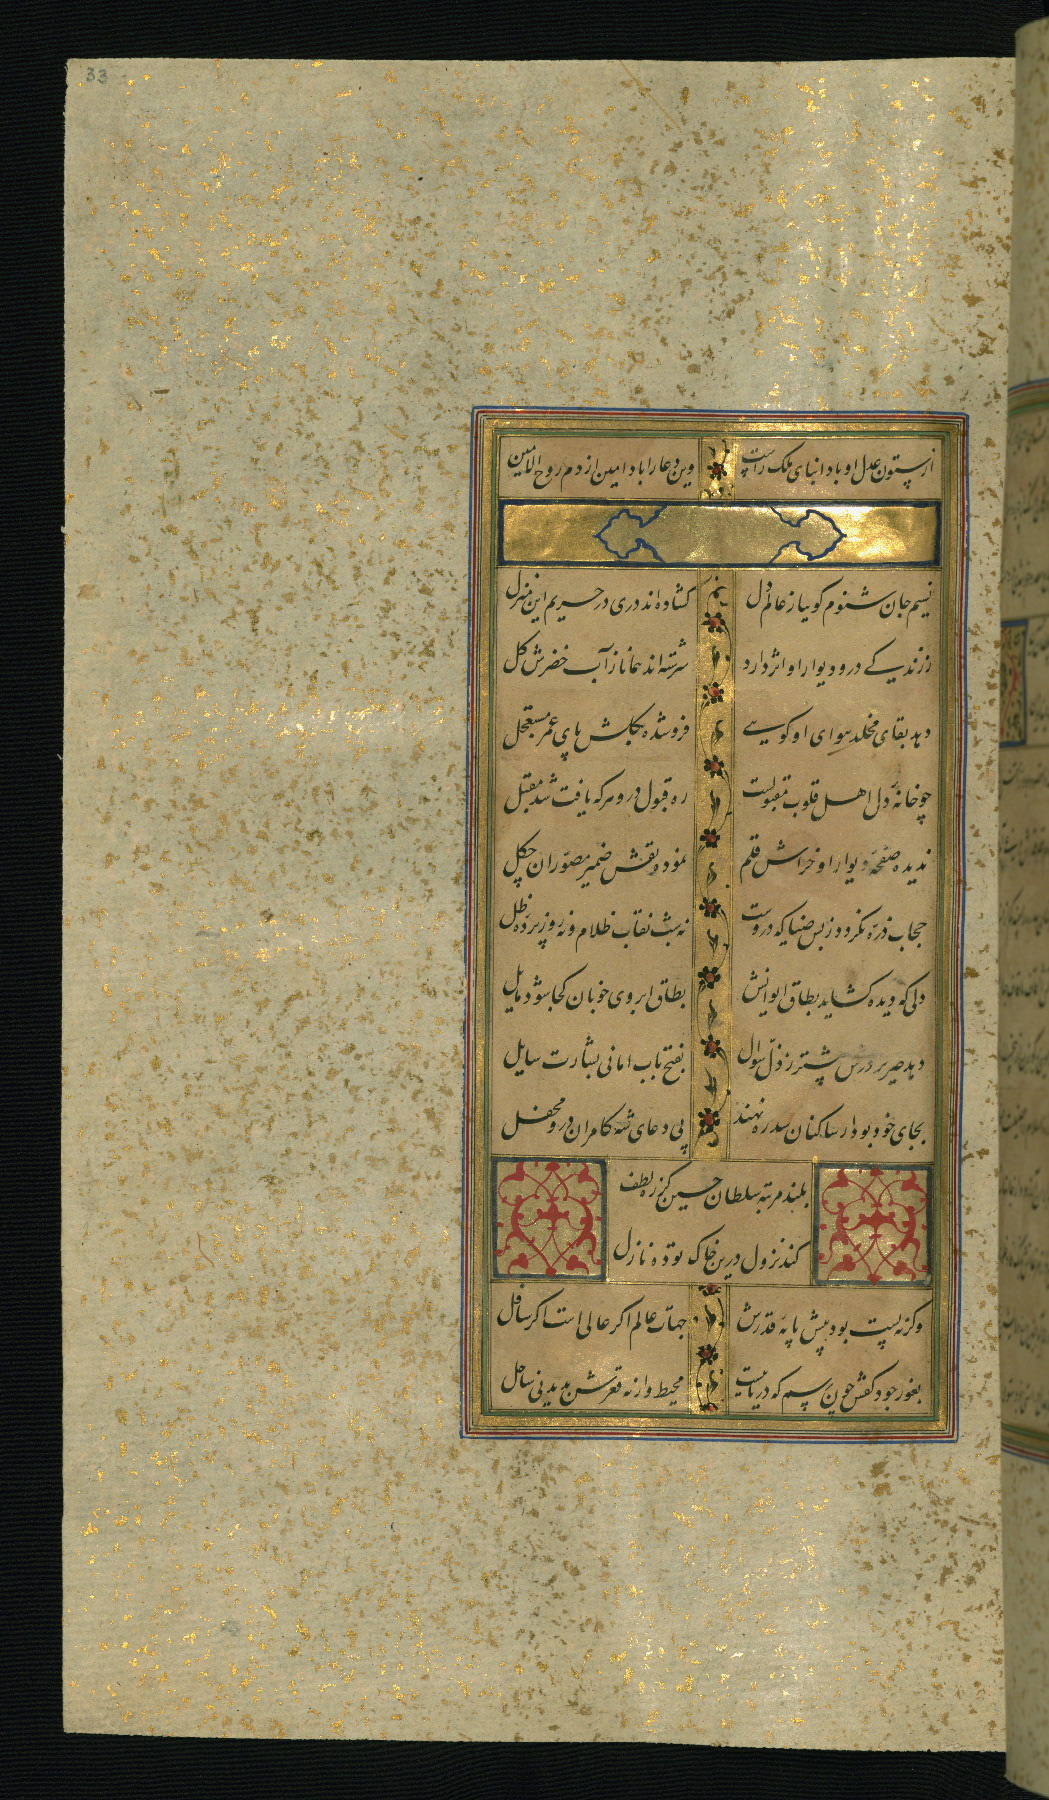 33
از ستون عدل او بادا بنای ملک راست
وین دعا را باد امین از دم روح الامین
نسیم جان شنوم گوییا ز عالم دل
گشاده‌اند دری در حریم این منزل
ز زندگی در و دیوار او اثر دارد
سرشته‌اند همانا ز آب خضرش گل
دهد بقای مخلد هوای او گویی
فرو شده بگلش پای عمر مستعجل
چو خانهٔ دل اهل قلوب مقبولست
ره قبول درو هر که یافت شد مقبل
ندیده صفحهٔ دیوار او خراش قلم
نموده نقش ضمیر مصوران چگل
حجاب ذره نگردد ز بس ضیا که دروست
نه شب نقاب ظلام و نه روز پردهٔ ظل
دلی که دیده گشاید بطاق ایوانش
بطاق ابروی خوبان کجا شود مایل
دهد صریر درش پیشتر ز ذل سوال
بفتح باب امانی بشارت سایل
بجای خود بود ار ساکنان سدره نهند
پی دعای شه کامران درو محفل
بلند مرتبه سلطان حسین کز ره لطف
کند نزول درین خاک توده نازل
وگرنه پست بود پیش پایهٔ قدرش
جهات عالم اگر عالی است اگر سافل
بغور جود کفش چون رسم که دریاییست
محیط و از نه قعرش پدید نی ساحل